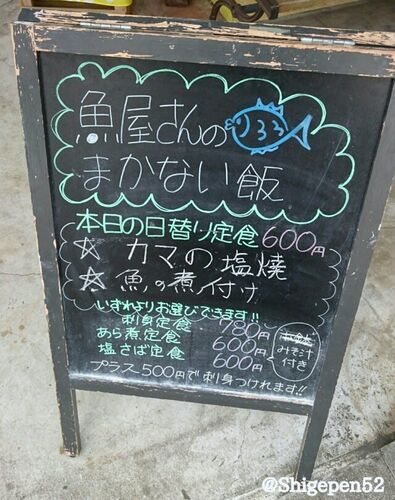 魚屋さんの
まかない飯
本日の日替り定食600円
☆ カマの塩焼
☆ 魚の煮付け
いずれよりお選びできます!!
刺身定食 780円
あら煮定食 600円
塩さば定食 600円
みそ汁
付き
プラス500円で刺身つけれます!!
@Shigepen52